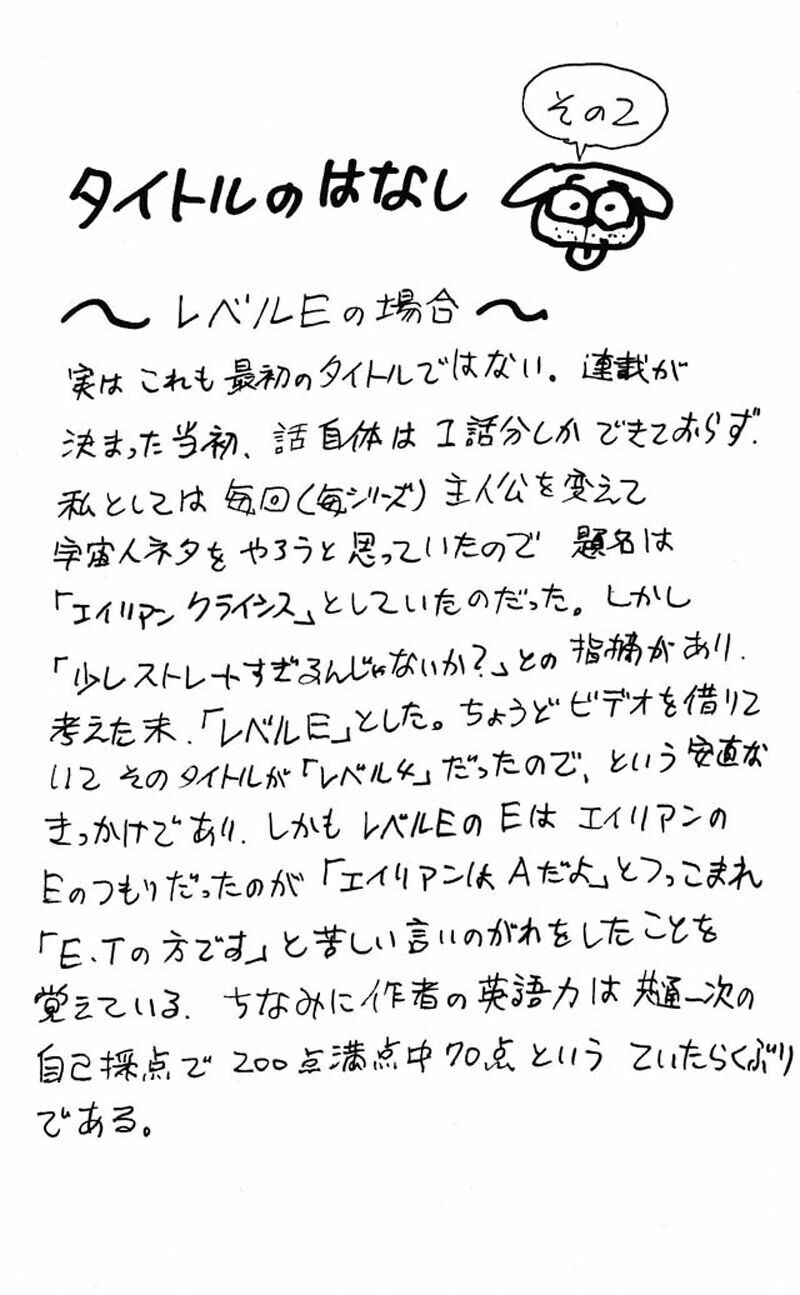 その2
タイトルのはなし
〜レベルEの場合〜
実はこれも最初のタイトルではない。連載が
決まった当初、話自体は1話分しかできておらず、
私としては毎回(毎シリーズ)主人公を変えて
宇宙人ネタをやろうと思っていたので 題名は
「エイリアンクライシス」としていたのだった。しかし
「少しストレートすぎるんじゃないか?」との指摘があり、
考えた末、「レベルE」とした。ちょうどビデオを借りて
いて そのタイトルが「レベル4」だったので、という安直な
きっかけであり、しかもレベルEのEはエイリアンの
Eのつもりだったのが「エイリアンはAだよ」とつっこまれ
「E.Tの方です」と苦しい言いのがれをしたことを
覚えている。ちなみに作者の英語力は共通一次の
自己採点で200点満点中70点という ていたらくぶり
である。